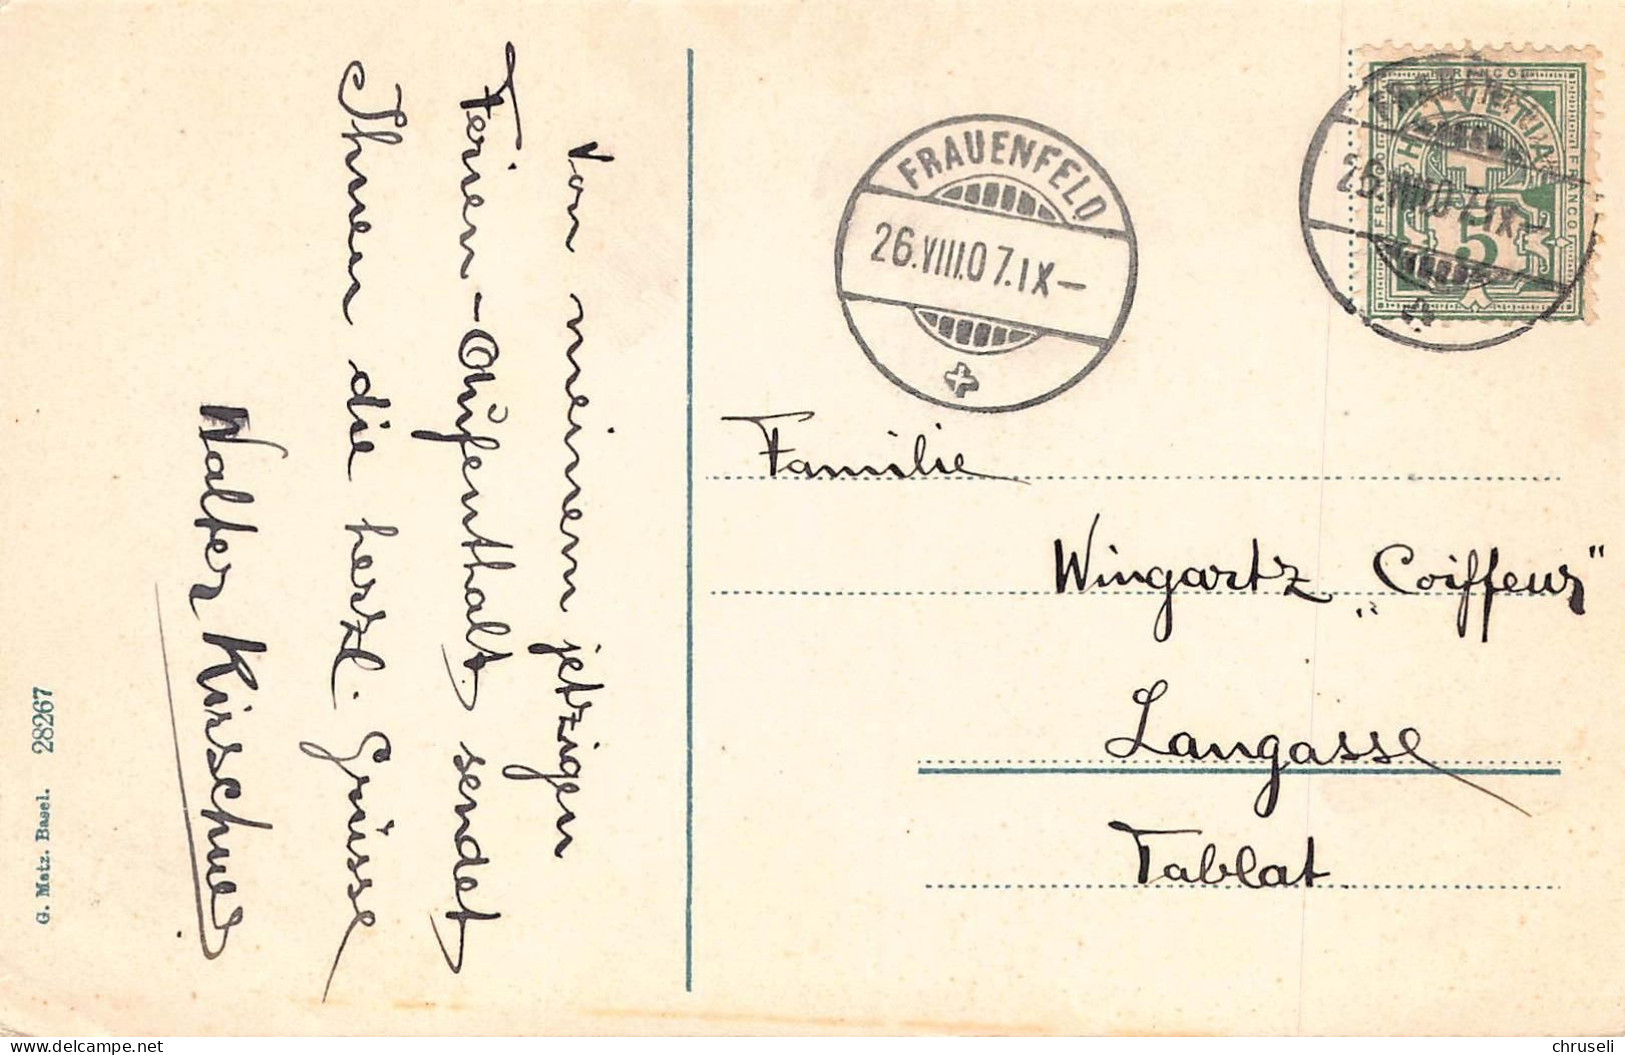 Von meinem jetzigen
Ferien-Aufenthalt sendet
Ihnen die herzl. Grüsse
Walter Kirschner
G. Metz. Basel. 28267
FRAUENFELD
26.VIII.07.IX—
FRANCO
HELVETIA
FRANCO
FRANCO
5
FRAUENFELD
26.VIII.07.IX—
Familie
Wingartz „Coiffeur“
Langasse
Tablat
chruseli